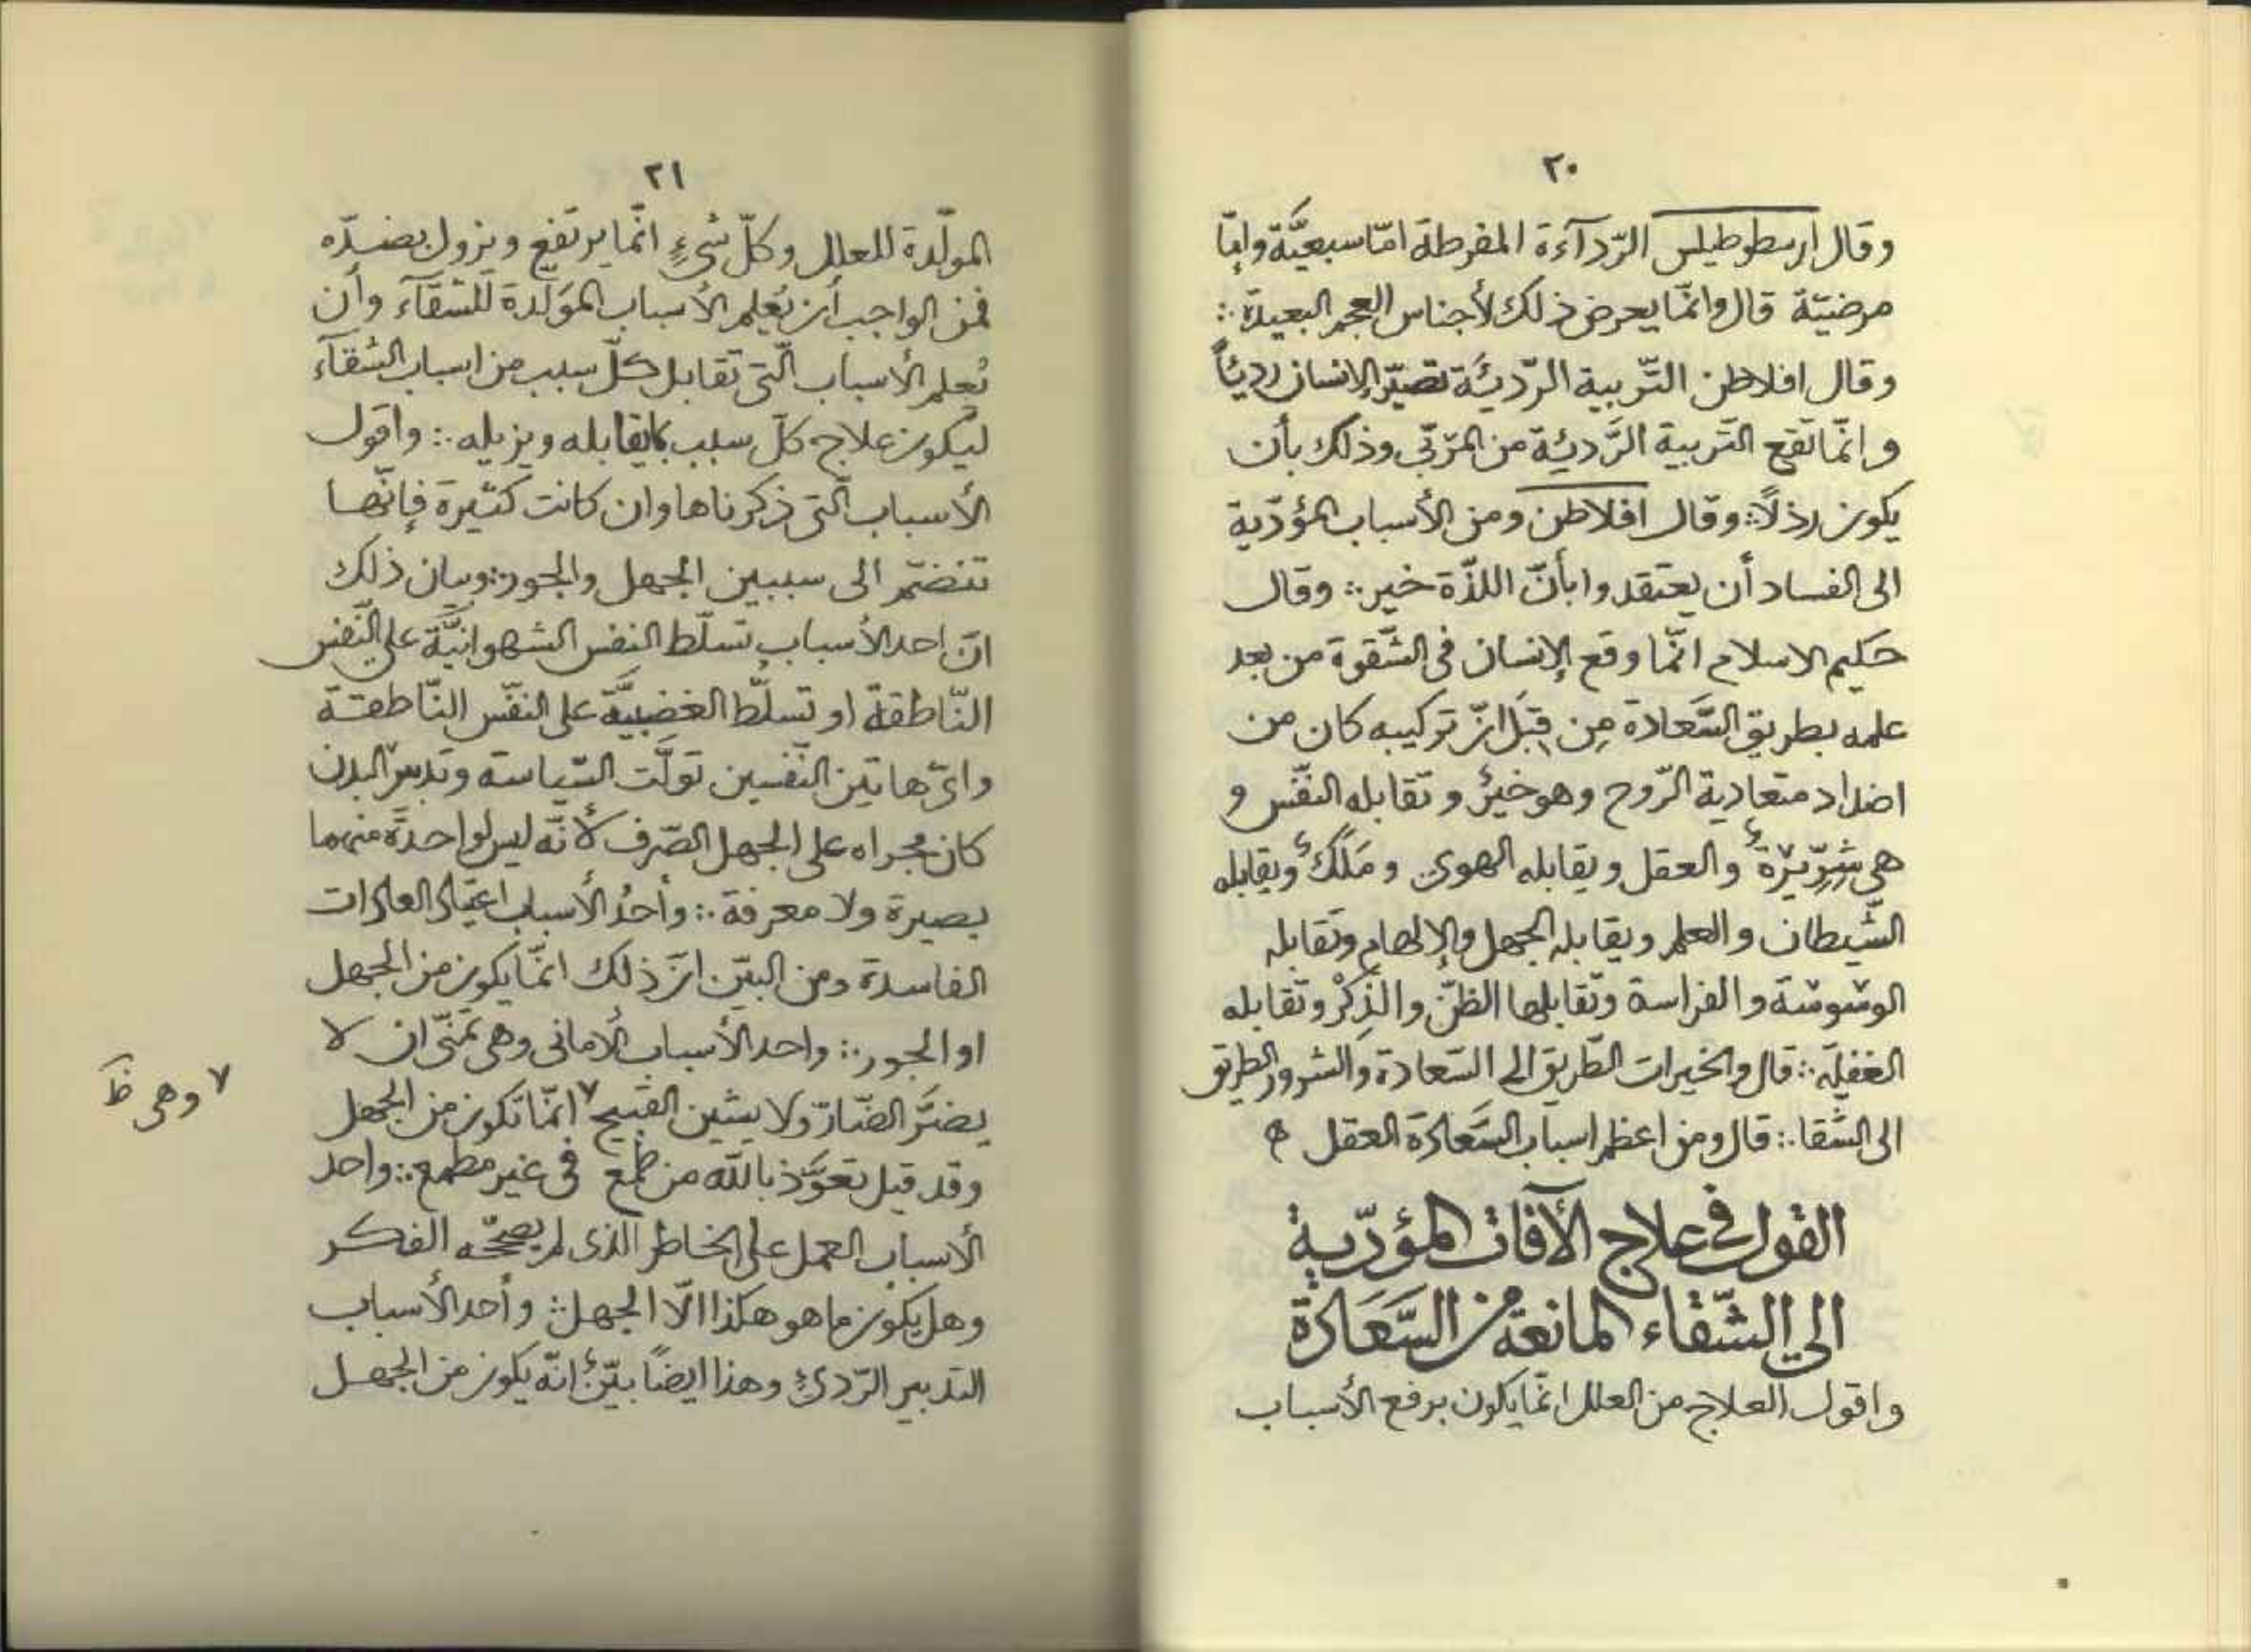 ٢٠
وقال ارسطوطيلس الرّدآءة المفرطة امّا سبعيَّة وامّا
مرضيّة قال وانّما يعرض ذلك لأجناس العجم البعيدة ∴
وقال افلاطن التّربية الرّديئَة تصيّر الإنسان رديئاً
وانّما تقع التّربية الرَّديئة من المربّى وذلك بأن
يكون رذلاً ∴ وقال افلاطن ومن الأسباب المؤدّية
الى الفساد أن يعتقدوا بأنّ اللذّة خير ∴ وقال
حكيم الاسلام انّما وقع الإنسان فى الشّقوة من بعد
علمه بطريق السَّعادة مِن قِبَل انّ تركيبه كان من
اضداد متعادية الرّوح وهو خيرٌ وتقابله النفّس و
هى شِرِّيْرة ٌ والعقل ويقابله الهوى ومَلَكٌ ويقابله
الشّيطان والعلم ويقابله الجهل والإلهام وتقابله
الوشوشة والفراسة وتقابلها الظنّ والذِكْر وتقابله
الغفلة ∴ قال والخيرات الطّريق الى السّعادة والشرور الطريق
الى الشّقا ∴ قال ومن اعظم اسباب السَّعادة العقل ه
القول فى علاج الآفات المؤدّية
الى الشّقاء المانعة من السَّعَادة
واقول العلاج من العلل انّما يكون برفع الأسباب
٢١
المولّدة للعلل وكلّ شىءٍ انّما يرتفع ويزول بضدّه
فمن الواجب أن يُعلم الأسباب المَوَلّدة للشّقآء وأن
يُعلم الأسباب الّتى تقابل كلّ سبب من اسباب الشقآء
ليكون علاج كلّ سبب بما يقابله ويزيله ∴ واقول
الأسباب الّتى ذكرناها وان كانت كثيرة فإنّها
تنضمّ الى سببين الجهل والجور ∴ وبيان ذلك
انّ احد الأسباب تسلّط النفس الشهوانيَّة على النّفس
النّاطقة او تسلّط الغضبيَّة على النفّس النّاطقة
واىّ هاتين النّفسين تولَّت السّياسة وتدبير البدن
كان مجراه على الجهل الصّرف لأنّه ليس لواحدة منهما
بصيرة ولا معرفة ∴ وأحدُ الأسباب اعتياد العادات
الفاسدة ومن البيّن انّ ذلك انّما يكون من الجهل
او الجور ∴ واحد الأسباب الأمانى وهى تمنّى ان لا
يضرَّ الضّارّ ولا يشين القبيح ٧ انّما تكون من الجهل
٧ وهى ظَ
وقد قيل تعوَّذ باللّه من طمع فى غير مطمع ∴ واحد
الأسباب العمل على الخاطر الّذى لم يصحّحه الفكر
وهل يكون ما هو هكذا الّا الجهل ∴ وأحد الأسباب
التدبير الرّدىءِ وهذا ايضاً بيّنٌ انّه يكون من الجهل